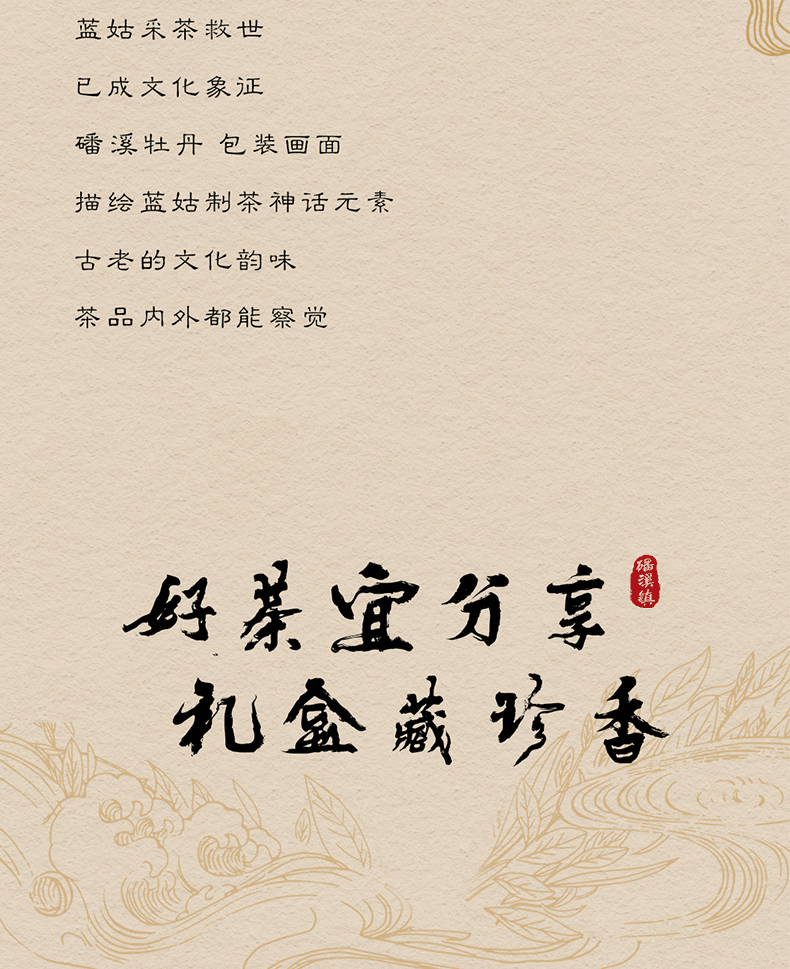 蓝姑采茶救世
已成文化象征
磻溪牡丹 包装画面
描绘蓝姑制茶神话元素
古老的文化韵味
茶品内外都能察觉
好茶宜分享
磻溪镇
礼盒藏珍香